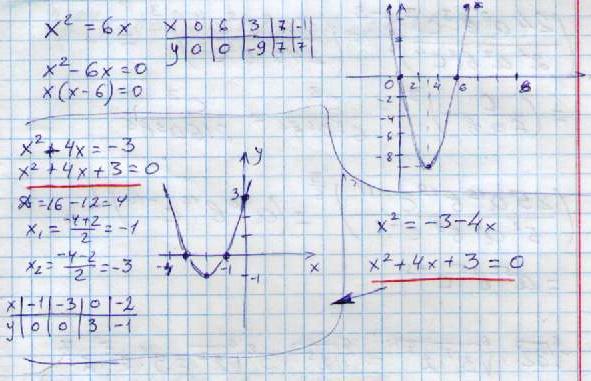 x² = 6x
x | 0 | 6 | 3 | 7 | -1
y | 0 | 0 | -9 | 7 | 7
x² - 6x = 0
x(x-6) = 0
0 2 4 6 8
-2
-4
-6
-8
x² + 4x = -3
x² + 4x + 3 = 0
D = 16 - 12 = 4
x₁ = (-4+2)/2 = -1
x₂ = (-4-2)/2 = -3
x | -1 | -3 | 0 | -2
y | 0 | 0 | 3 | -1
y
3
-4 -1 x
-1
x² = -3 - 4x
x² + 4x + 3 = 0